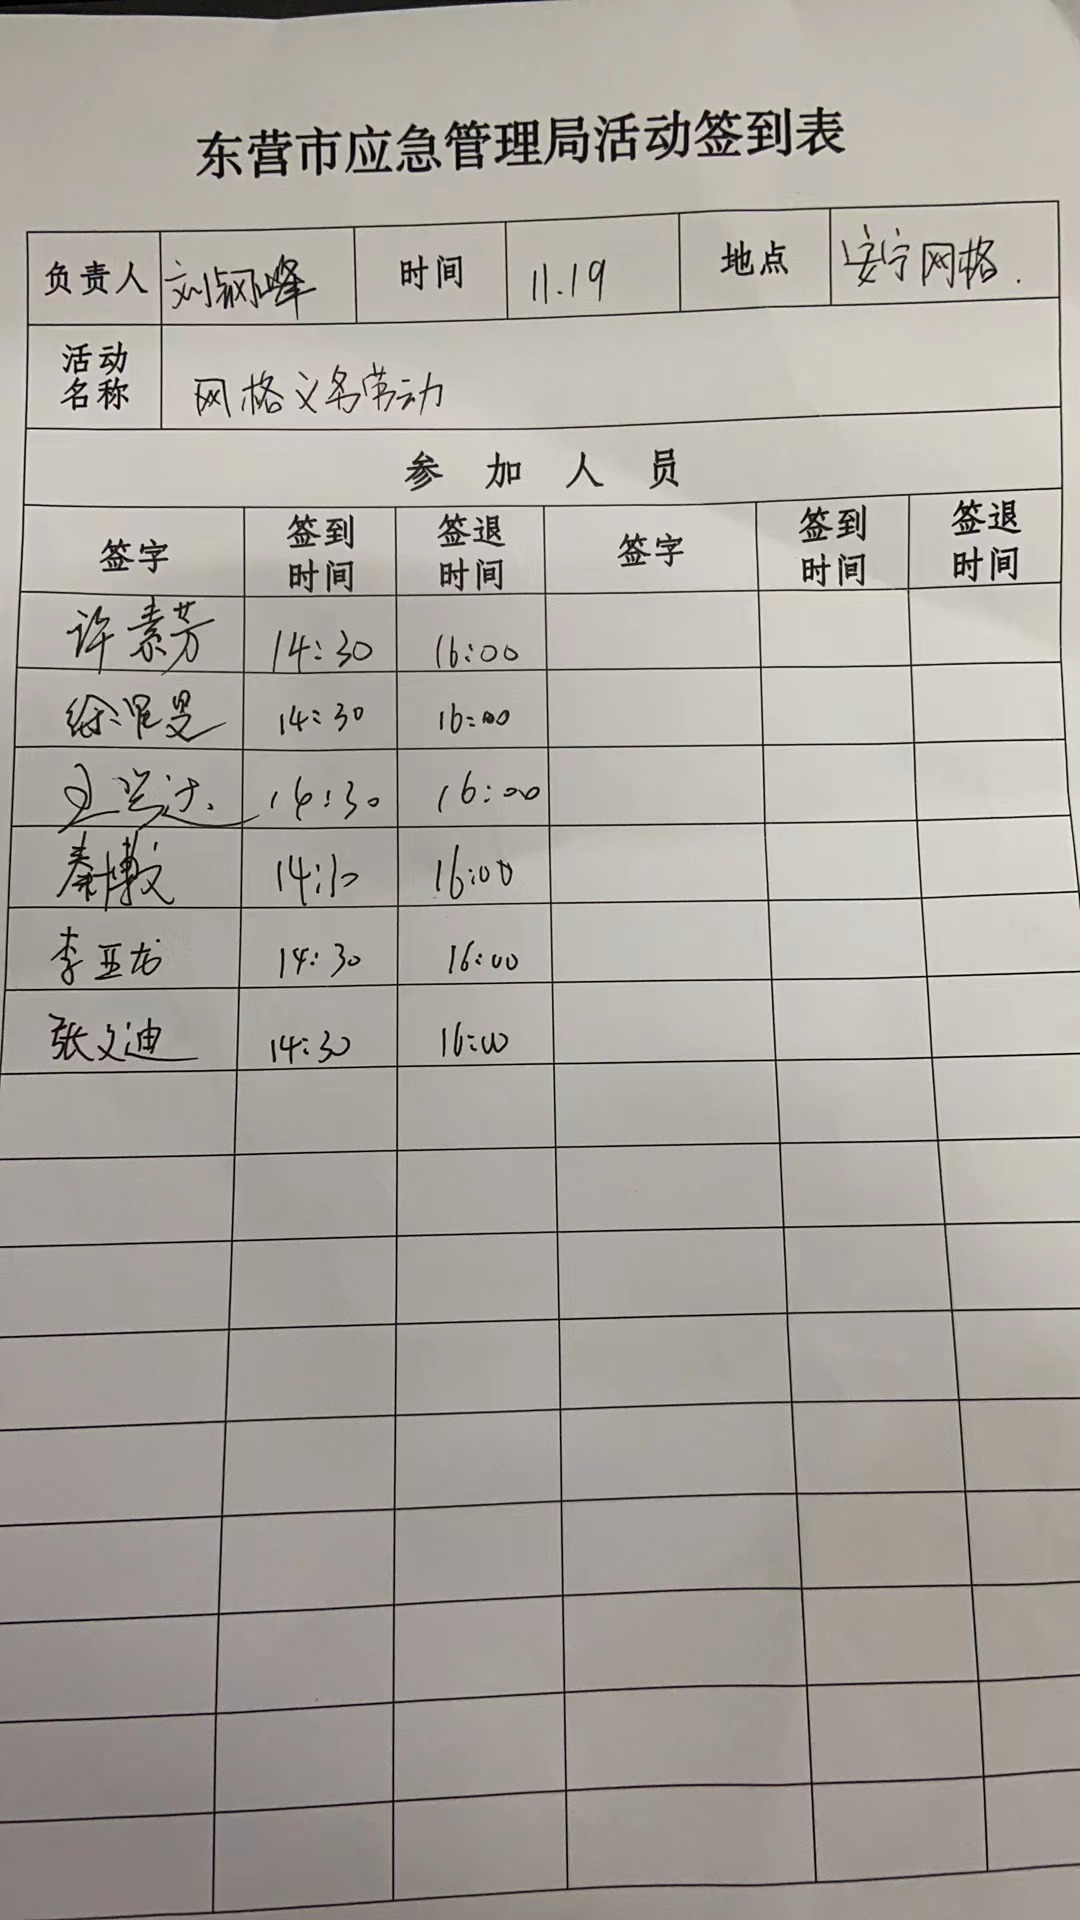 东营市应急管理局活动签到表
负责人 刘钢峰 时间 11.19 地点 安宁网格.
活动名称 网格义务劳动
参加人员
签字 签到时间 签退时间 签字 签到时间 签退时间
许素芳 14:30 16:00
徐 14:30 16:00
王兴达 14:30 16:00
秦博文 14:30 16:00
李亚龙 14:30 16:00
张文迪 14:30 16:00